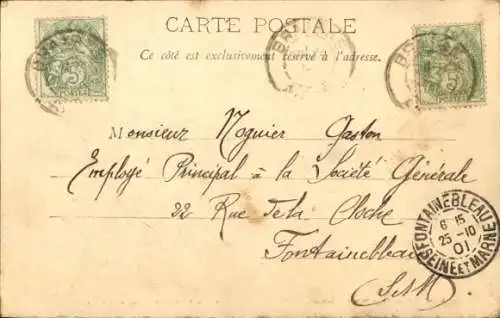 CARTE POSTALE
Ce côté est exclusivement réservé à l'adresse.
5
5
Monsieur Noguier Gaston
Employé Principal à la Société Générale
22 Rue de la Cloche
Fontainebleau
S&M
FONTAINEBLEAU
6 15
25 -10
01
SEINE ET MARNE